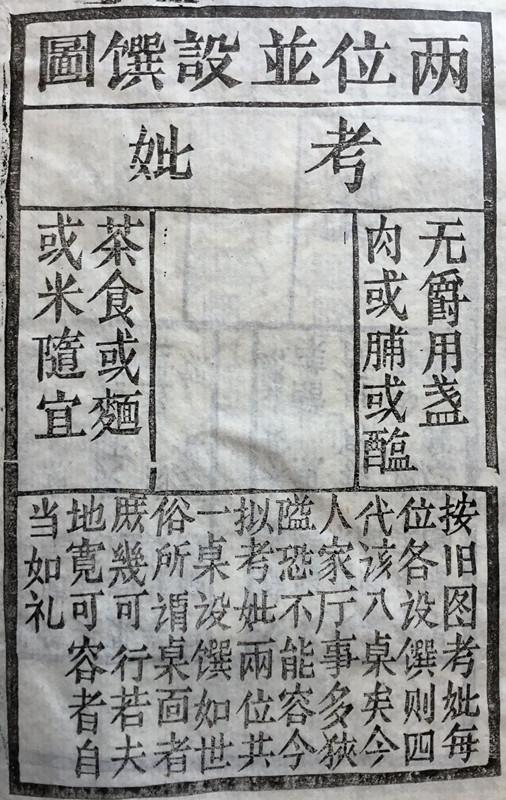 两位並設饌圖
考 妣
无爵用盏
肉或脯或醢
茶食或麵
或米隨宜
按旧图考妣每
位各设馔则四
代该八桌矣今
人家厅事多狹
隘恐不能容今
拟考妣兩位共
一桌设馔如世
俗所谓桌面者
庶幾可行若夫
地寬可容者自
当如礼